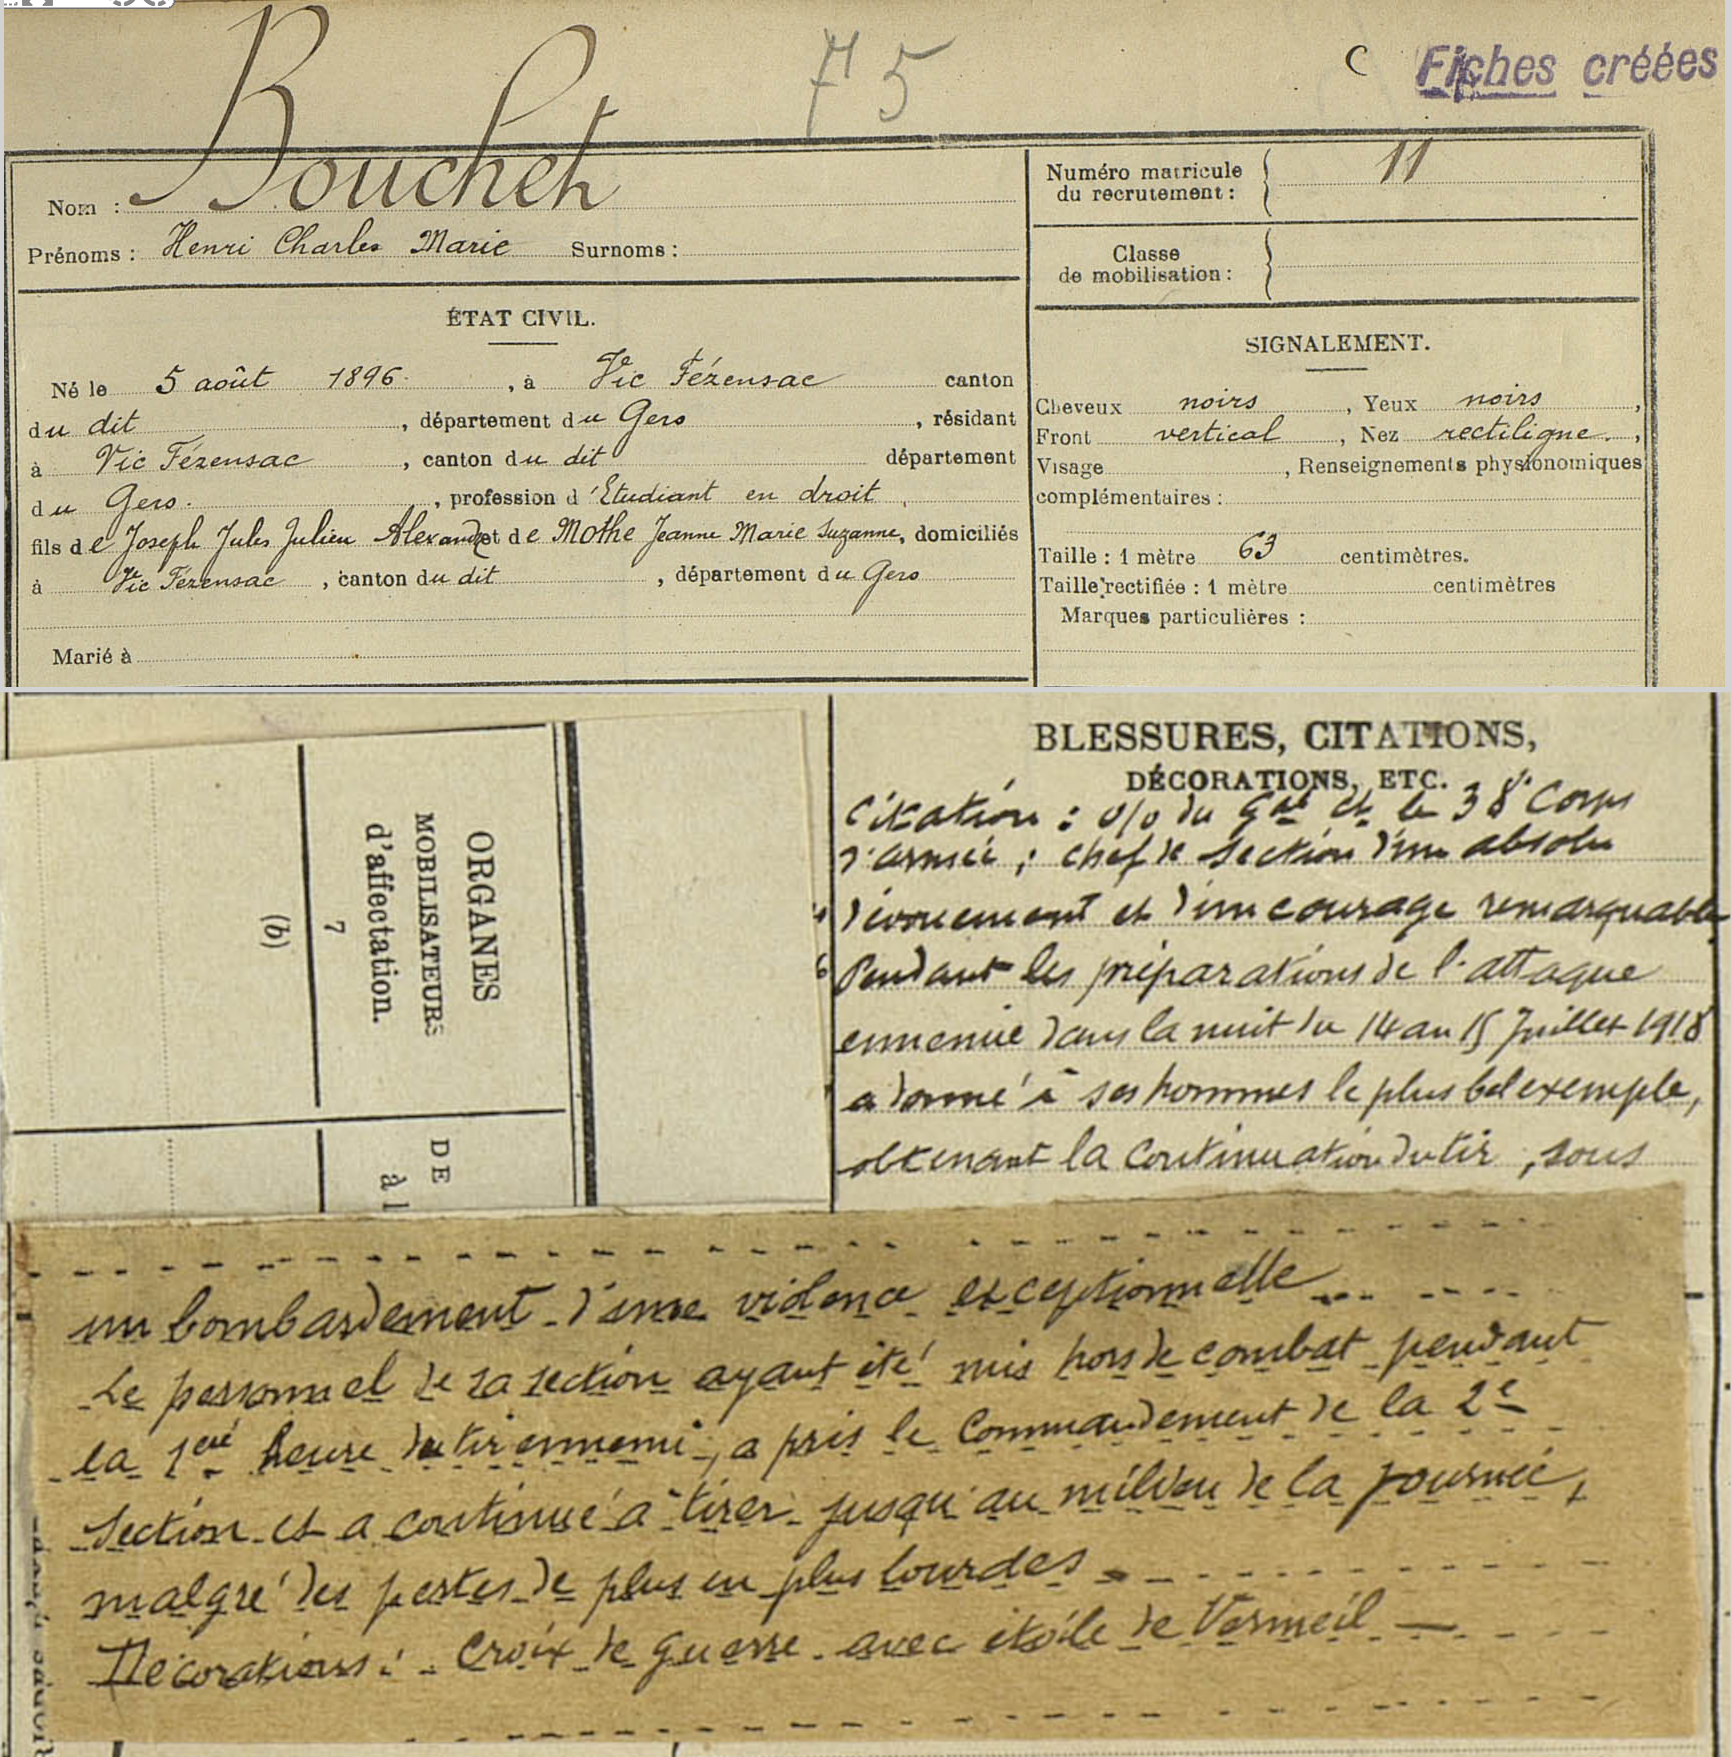 75
C Fiches créées
Bouchet
Nom :
Prénoms : Henri Charles Marie Surnoms :
ÉTAT CIVIL.
Né le 5 août 1896 , à Vic Fézensac canton
du dit , département du Gers , résidant
à Vic Fézensac , canton du dit département
du Gers. , profession d'Etudiant en droit
fils de Joseph Jules Julien Alexandre et de Mothe Jeanne Marie Suzanne, domiciliés
à Vic Fézensac , canton du dit , département du Gers
Marié à
Numéro matricule
du recrutement : 11
Classe
de mobilisation :
SIGNALEMENT.
Cheveux noirs , Yeux noirs ,
Front vertical , Nez rectiligne. ,
Visage , Renseignements physionomiques
complémentaires :
Taille : 1 mètre 63 centimètres.
Taille rectifiée : 1 mètre centimètres
Marques particulières :
ORGANES
MOBILISATEURS
d'affectation.
7
(b)
DE
à l
BLESSURES, CITATIONS,
DÉCORATIONS, ETC.
Citation : o/o du Gal Ct le 38e Corps
d'armée ; chef de Section d'un absolu
dévouement et d'un courage remarquable
Pendant les préparations de l'attaque
ennemie dans la nuit du 14 au 15 Juillet 1918
a donné à ses hommes le plus bel exemple,
obtenant la continuation du tir , sous
un bombardement d'une violence exceptionnelle
Le personnel de sa section ayant été mis hors de combat pendant
la 1ere heure du tir ennemi, a pris le Commandement de la 2e
Section et a continué à tirer jusqu'au milieu de la journée,
malgré des pertes de plus en plus lourdes.
Décorations : Croix de guerre avec étoile de Vermeil —